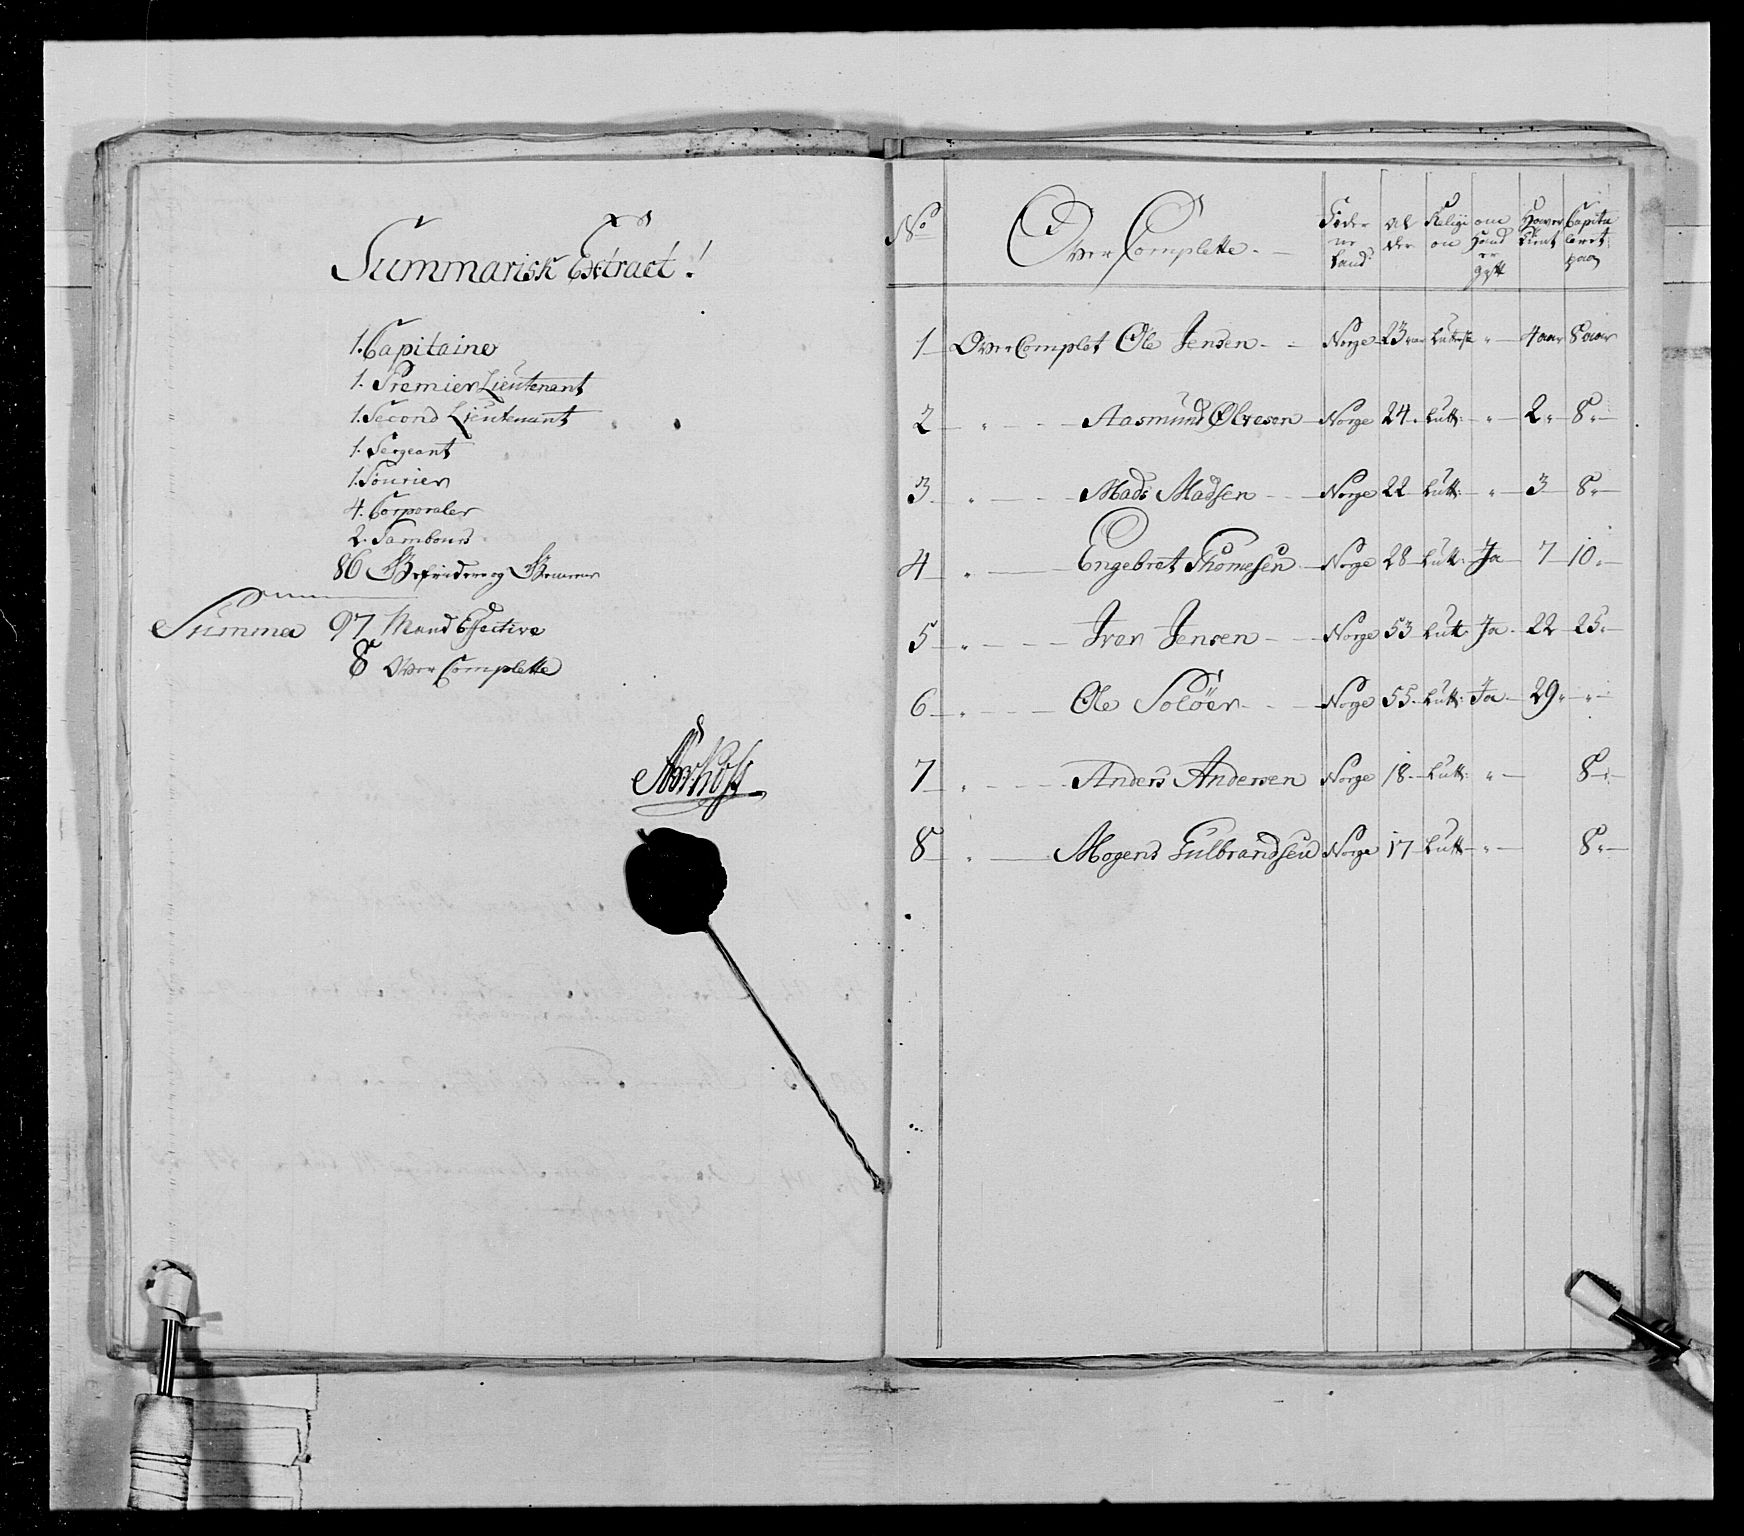 Summarisk Extract!
1. Capitaine
1. Premier Lieutenant
1. Second Lieutenant
1. Sergeant
1. Fourier
4. Corporaler
2. Tambours
86 Gefreidere og Gemeene
Summa 97 Mand Effective
8 Over Complette
No Over Complette. Føder ne Land Al der Religi on om Hand er gift Hawer tient Capitu leret paa
1 Over Complet Ole Jensen Norge 23 aar Luttersk " 4 aar 8 aar
2 " Aasmund Olvesen Norge 24. Lutt: " 2" 8"
3 " Mads Madsen Norge 22 Lutt: " 3 8"
4 " Engebret Thomesen Norge 28 Lutt: Ja 7 10"
5 " Iver Jensen Norge 53 Lutt: Ja 22 25"
6 " Ole Soløer Norge 55. Lutt: Ja 29" "
7 " Anders Andersen Norge 18 Lutt: " 8"
8 " Mogens Gulbrandsen Norge 17 Lutt " 8"